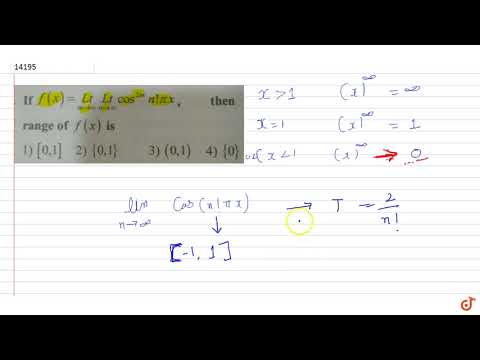 14195
If f(x) = Lt Lt cos²ᵐ n!πx, then
range of f(x) is
1) [0,1] 2) {0,1} 3) (0,1) 4) {0}
x > 1 (x)^∞ = ∞
x = 1 (x)^∞ = 1
x < 1 (x)^∞ → 0
lim n→∞ Cos(n!πx) → T = 2/n!
[-1, 1]